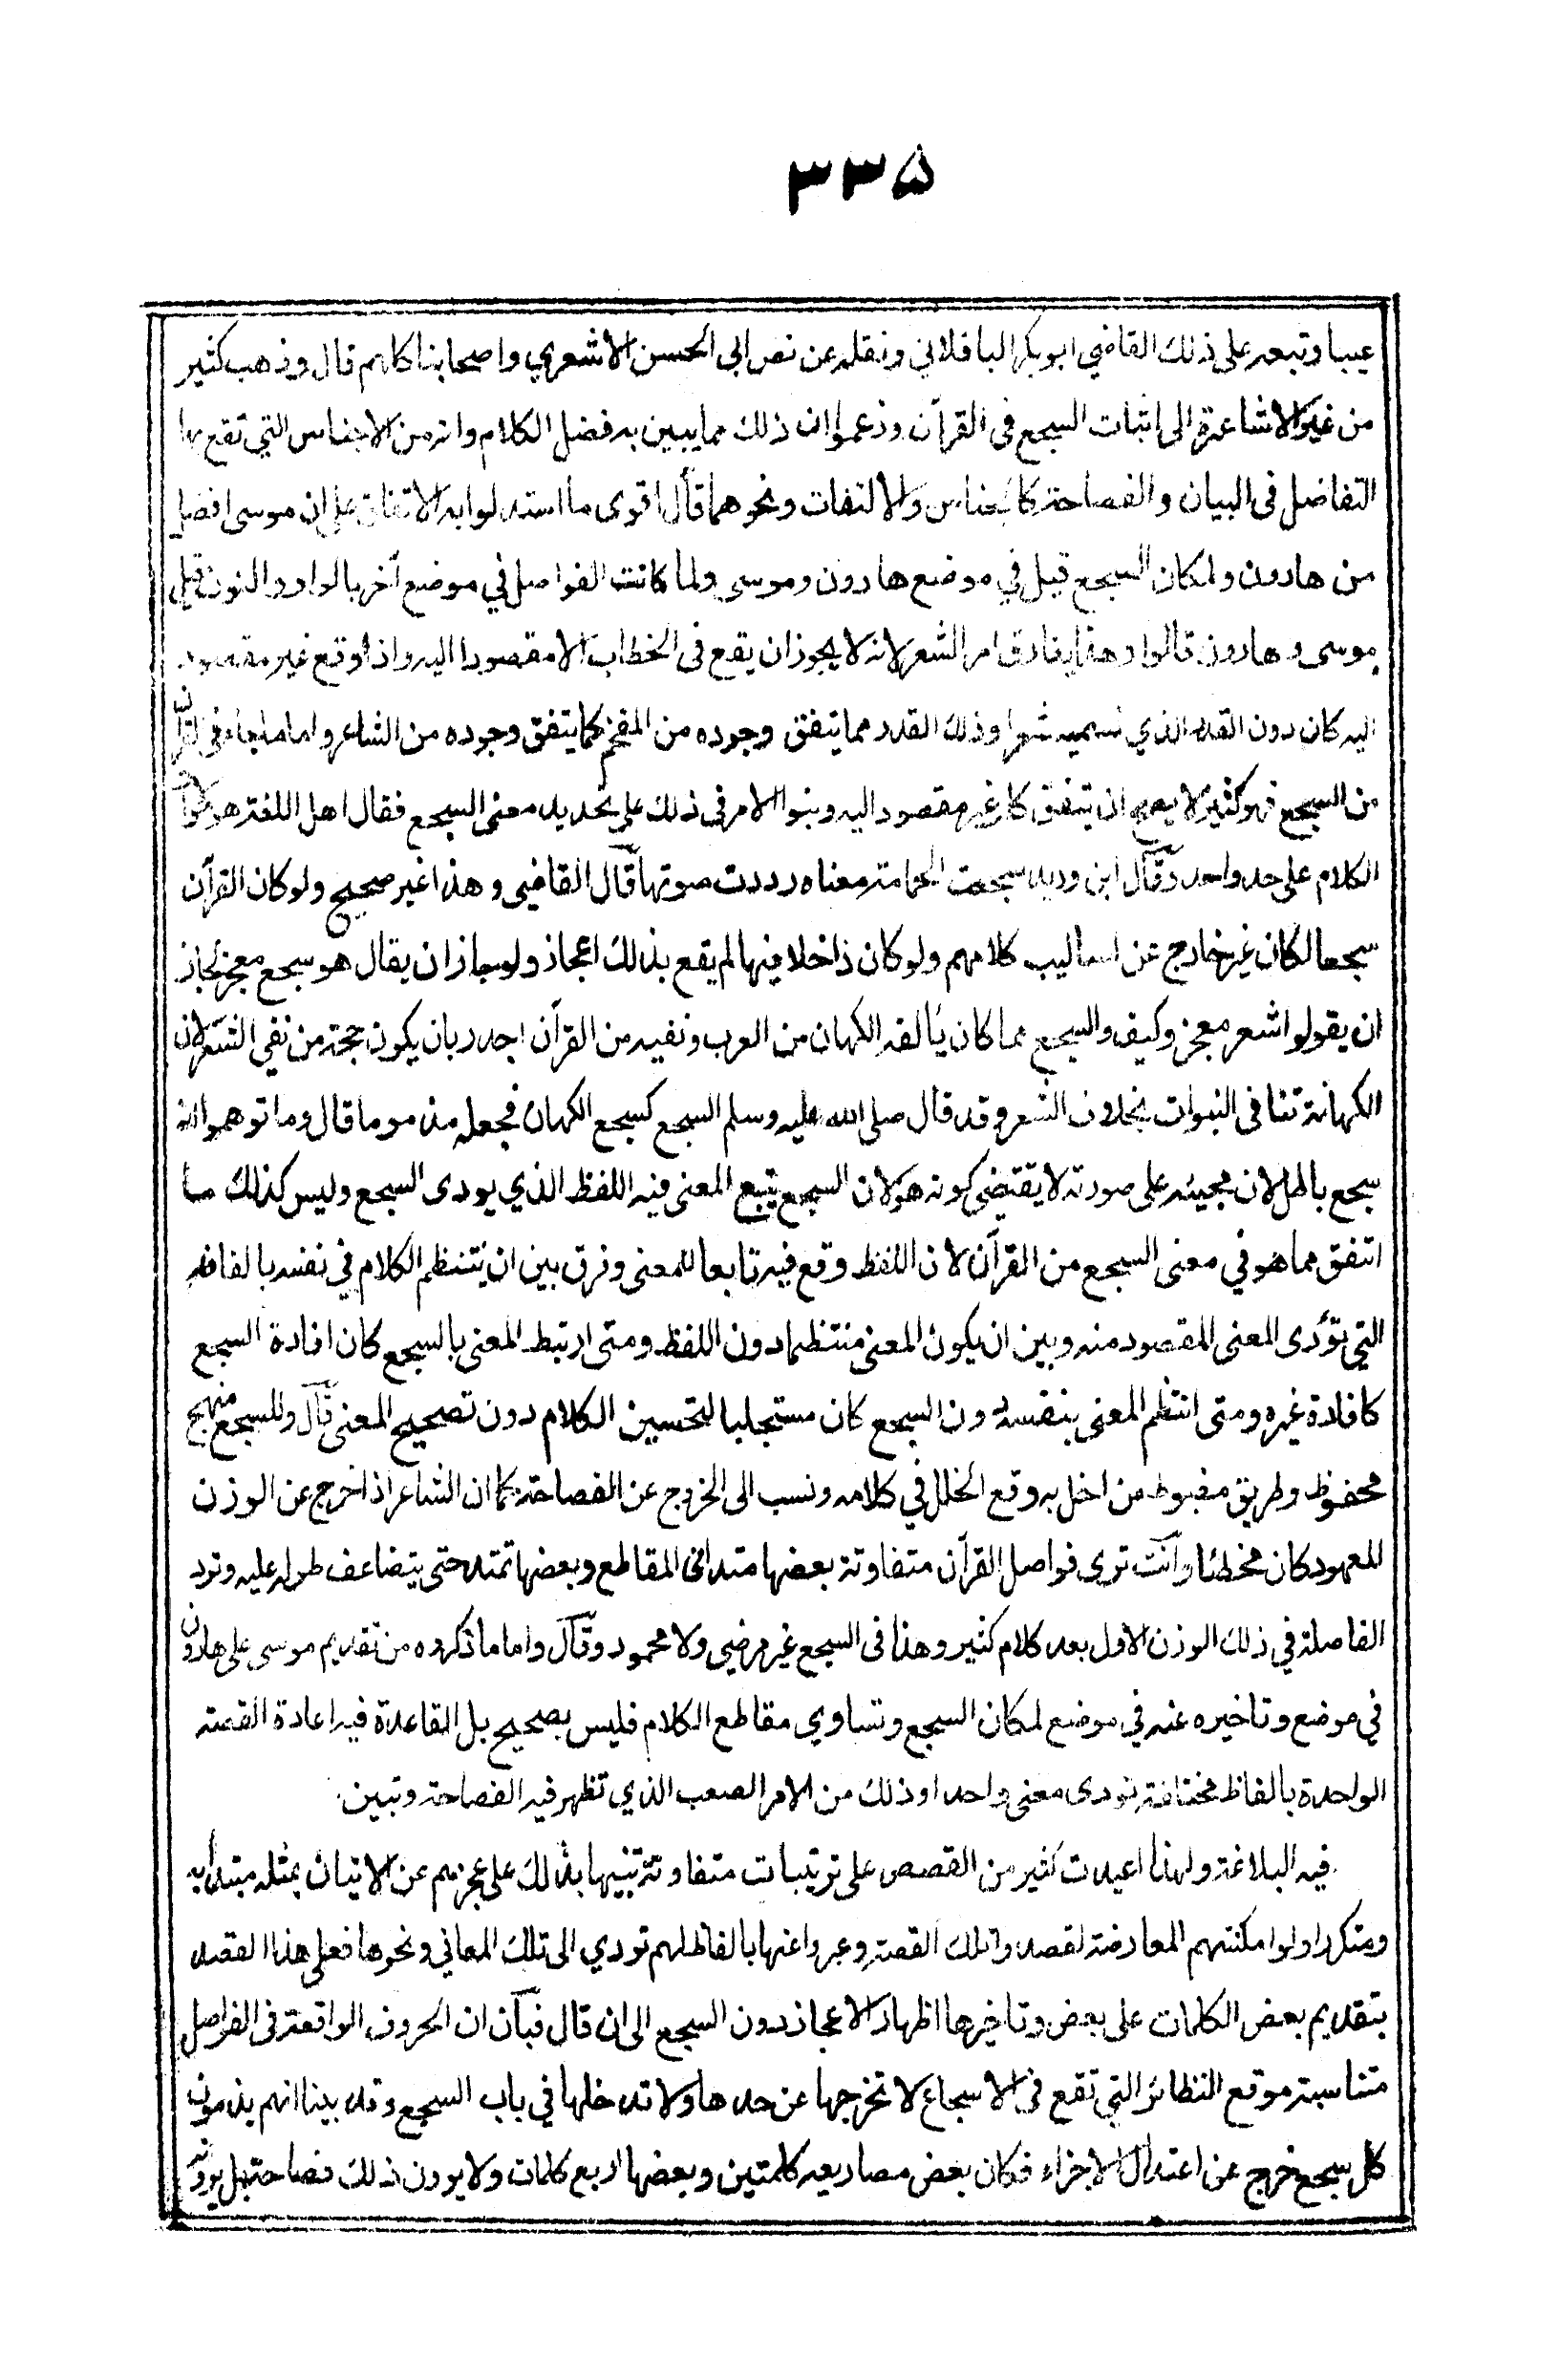 ۳۳۵
عيبا وتبعه على ذلك القاضي ابوبكر الباقلاني ونقله عن نص ابى الحسن الاشعري واصحابنا كلهم قال وذهب كثير
من غير الاشاعرة الى اثبات السجع فى القرآن وزعموا ان ذلك مما يبين به فضل الكلام وانه من الاجناس التي تقع بها
التفاضل فى البيان والفصاحة كالجناس والالتفات ونحوهما قال اقوى ما استدلوا به الاتفاق على ان موسى افضل
من هارون ولمكان السجع قيل في موضع هارون وموسى ولما كانت الفواصل في موضع آخر بالواو والنون قيل
موسى وهارون قالوا وهذا يفارق امر الشعر لانه لا يجوز ان يقع فى الخطاب الا مقصودا اليه واذا وقع غير مقصود
اليه كان دون القدر الذي نسميه شعرا وذلك القدر مما يتفق وجوده من المفخم كما يتفق وجوده من الشاعر واما ما جاء فى القرآن
من السجع فهو كثير لا يصح ان يتفق كله غير مقصود اليه وبنوا الامر فى ذلك على تحديد معنى السجع فقال اهل اللغة هو موالاة
الكلام على حد واحد وقال ابن دريد سجعت الحمامة معناه رددت صوتها قال القاضي وهذا غير صحيح ولو كان القرآن
سجعا لكان غير خارج عن اساليب كلامهم ولو كان داخلا فيها لم يقع بذلك اعجاز ولو جاز ان يقال هو سجع معجز لجاز
ان يقولوا شعر معجز وكيف والسجع مما كان يألفه الكهان من العرب ونفيه من القرآن اجدر بان يكون حجة من نفي الشعر لان
الكهانة تنافى النبوات بخلاف الشعر وقد قال صلى الله عليه وسلم السجع كسجع الكهان فجعله مذموما قال وما توهموا انه
سجع باطل لان مجيئه على صورته لا يقتضي كونه هو لان السجع يتبع المعنى فيه اللفظ الذي يودى السجع وليس كذلك ما
اتفق مما هو في معنى السجع من القرآن لان اللفظ وقع فيه تابعا للمعنى وفرق بين ان يتنظم الكلام في نفسه بالفاظه
التي تؤدى المعنى المقصود منه وبين ان يكون المعنى منتظما دون اللفظ ومتى ارتبط المعنى بالسجع كان افادة السجع
كافادة غيره ومتى انتظم المعنى بنفسه دون السجع كان مستجلبا لتحسين الكلام دون تصحيح المعنى قال وللسجع منهج
محفوظ وطريق مضبوط من اخل به وقع الخلل في كلامه ونسب الى الخروج عن الفصاحة كما ان الشاعر اذا خرج عن الوزن
المعهود كان مخطئا وانت ترى فواصل القرآن متفاوتة بعضها متدانى المقاطع وبعضها تمتد حتى يتضاعف طوله عليه وترد
الفاصلة في ذلك الوزن الاول بعد كلام كثير وهذا فى السجع غير مرضي ولا محمود وقال واما ما ذكروه من تقديم موسى على هارون
في موضع وتاخيره عنه في موضع لمكان السجع وتساوي مقاطع الكلام فليس بصحيح بل القاعدة فيه اعادة القصة
الواحدة بالفاظ مختلفة تودى معنى واحدا وذلك من الامر الصعب الذي تظهر فيه الفصاحة وتبين
فيه البلاغة ولهذا اعيدت كثير من القصص على ترتيبات متفاوتة تنبيها بذلك على عجزهم عن الاتيان بمثله مبتدأ به
ومتكررا ولو امكنتهم المعارضة لقصدوا تلك القصة وعبروا عنها بالفاظ لهم تودي الى تلك المعاني ونحوها فعلى هذا القصد
بتقديم بعض الكلمات على بعض وتاخيرها اظهار الاعجاز دون السجع الى ان قال فبان ان الحروف الواقعة فى الفواصل
متناسبة موقع النظائر التي تقع فى الاسجاع لا تخرجها عن حدها ولا تدخلها في باب السجع وقد بينا انهم يذمون
كل سجع خرج عن اعتدال الاجزاء فكان بعض مصاريعه كلمتين وبعضها اربع كلمات ولا يرون ذلك فصاحة بل يرونه